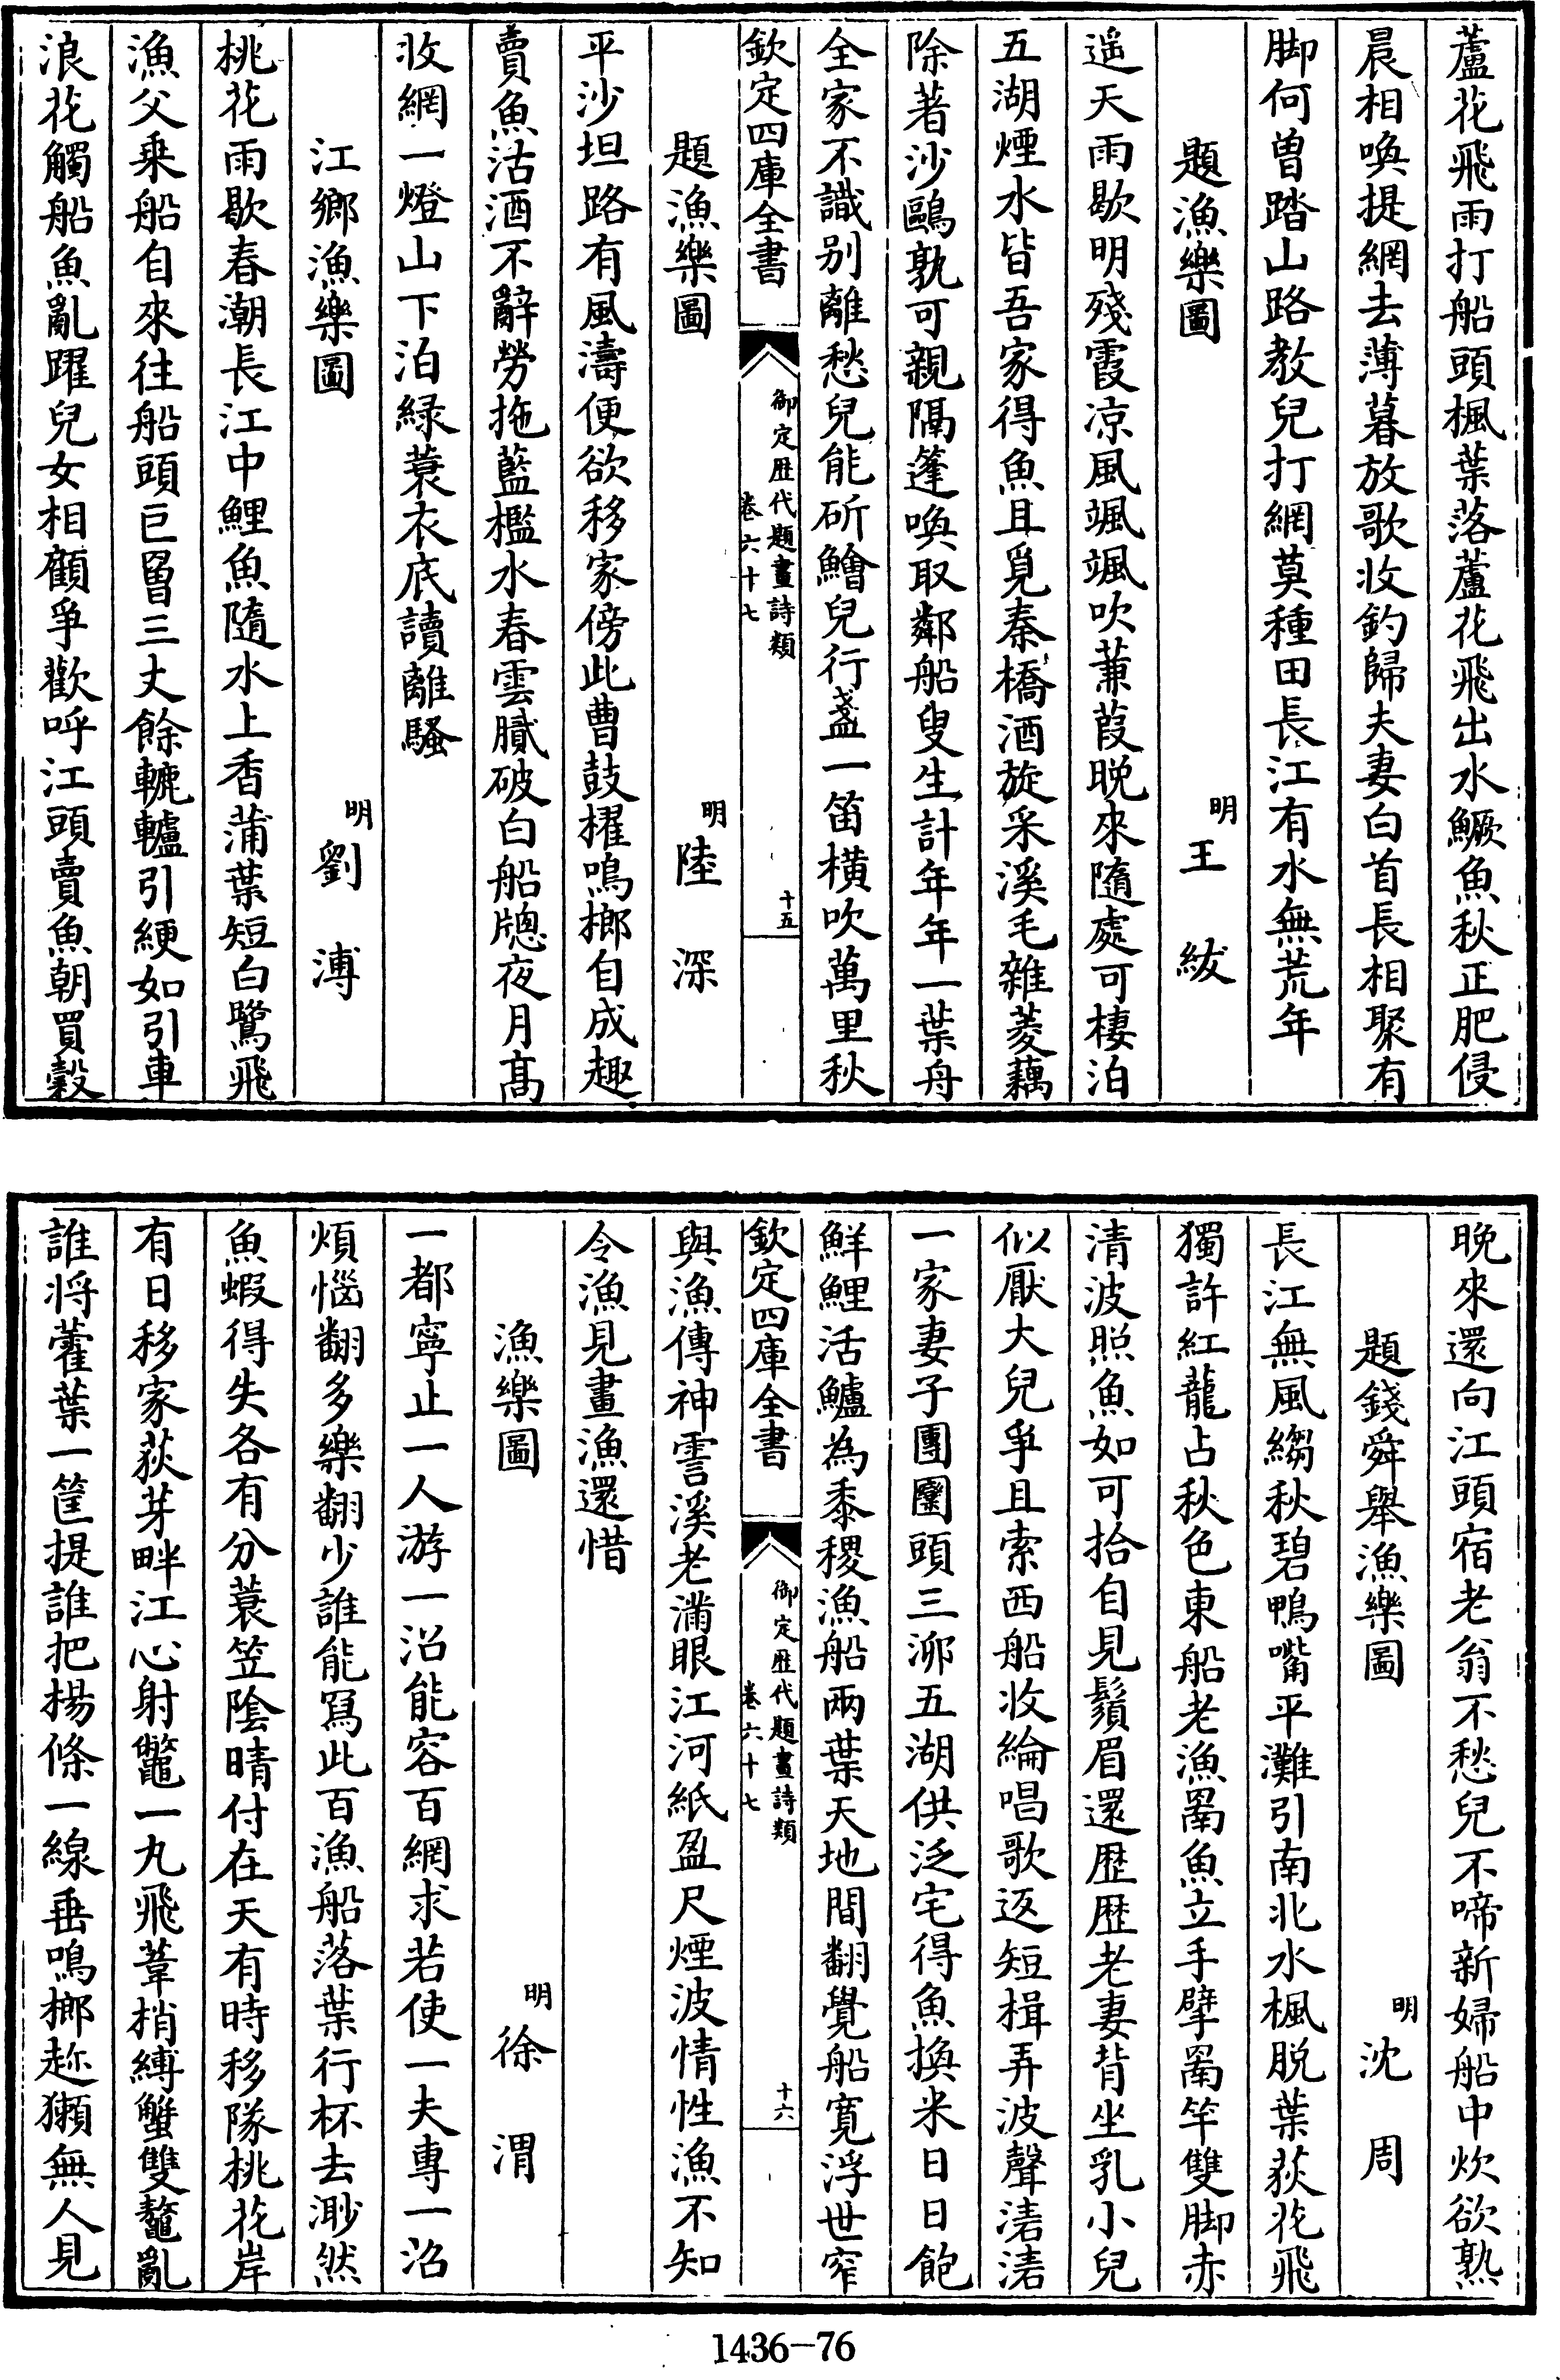 蘆花飛雨打船頭楓葉落蘆花飛出水鱖魚秋正肥侵
晨相喚提網去薄暮放歌收釣歸夫妻白首長相聚有
脚何曽踏山路教兒打網莫種田長江有水無荒年
題漁樂圖 明 王紱
遥天雨歇明殘霞凉風颯颯吹蒹葭晚來隨處可棲泊
五湖煙水皆吾家得魚且覓秦橋酒旋采溪毛雜菱藕
除著沙鷗孰可親隔篷喚取鄰船叟生計年年一葉舟
全家不識别離愁兒能斫鱠兒行盞一笛橫吹萬里秋
欽定四庫全書 御定歴代題畫詩類 卷六十七 十五
題漁樂圖 明 陸深
平沙坦路有風濤便欲移家傍此曹鼓櫂鳴榔自成趣
賣魚沽酒不辭勞拖藍檻水春雲膩破白船牕夜月髙
收網一燈山下泊緑蓑衣底讀離騷
江鄉漁樂圖 明 劉溥
桃花雨歇春潮長江中鯉魚隨水上香蒲葉短白鷺飛
漁父乗船自來往船頭已畱三丈餘轆轤引綆如引車
浪花觸船魚亂躍兒女相顧爭歡呼江頭賣魚朝買穀
晚來還向江頭宿老翁不愁兒不啼新婦船中炊欲熟
題錢舜舉漁樂圖 明 沈周
長江無風縐秋碧鴨嘴平灘引南北水楓脱葉荻花飛
獨許紅龍占秋色東船老漁罱魚立手擘罱竿雙脚赤
清波照魚如可拾自見鬚眉還歴歴老妻背坐乳小兒
似厭大兒爭且索西船收綸唱歌返短楫弄波聲濸濸
一家妻子團圞頭三泖五湖供泛宅得魚換米日日飽
鮮鯉活鱸為黍稷漁船兩葉天地間翻覺船寛浮世窄
欽定四庫全書 御定歴代題畫詩類 卷六十七 十六
與漁傳神霅溪老滿眼江河紙盈尺煙波情性漁不知
令漁見畫漁還惜
漁樂圖 明 徐渭
一都寧止一人游一沼能容百網求若使一夫專一沼
煩惱翻多樂翻少誰能冩此百漁船落葉行杯去渺然
魚蝦得失各有分蓑笠陰晴付在天有時移隊桃花岸
有日移家荻芽畔江心射鼈一丸飛葦梢縛蟹雙螯亂
誰將藿葉一筐提誰把楊條一線垂鳴榔趂獺無人見
1436-76